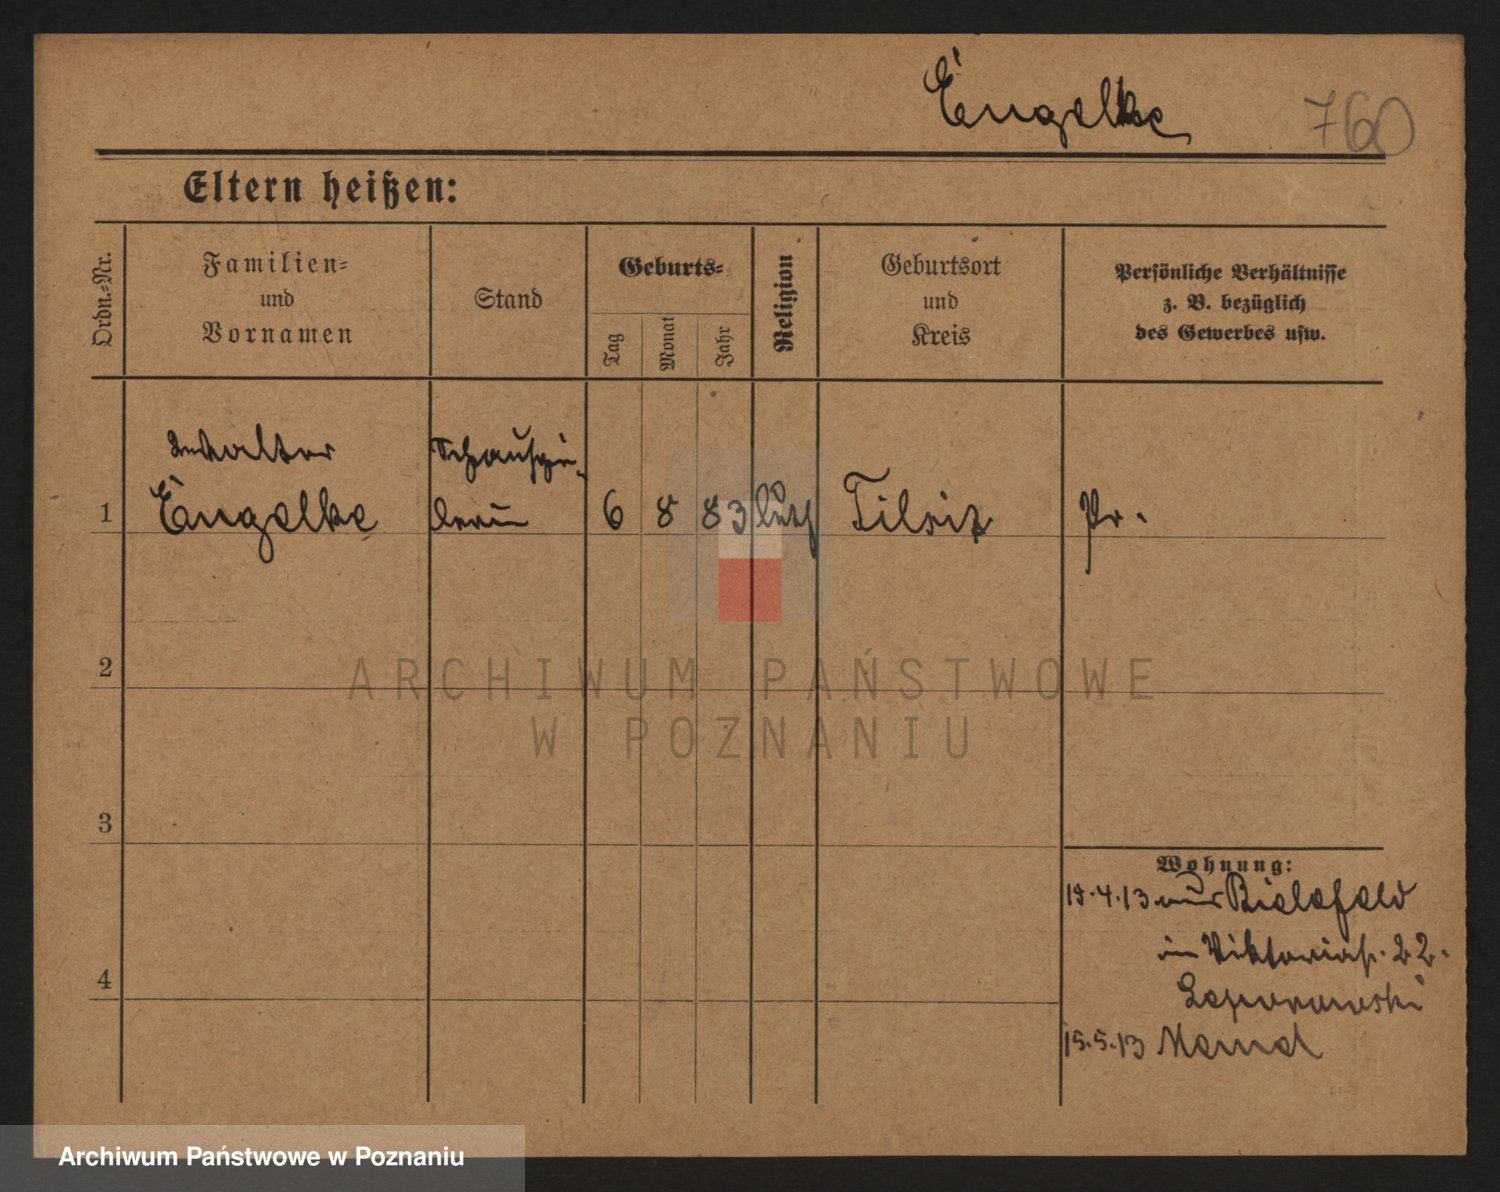 Engelke 760
Eltern heißen:
Ordn.-Nr.
Familien-
und
Vornamen
Stand
Geburts-
Tag
Monat
Jahr
Religion
Geburtsort
und
Kreis
Persönliche Verhältnisse
z. B. bezüglich
des Gewerbes usw.
Walter Schauspie-
1 Engelke lerin 6 8 83 luth Tilsit Pr.
2
3
4
Wohnung:
19.4.13 aus Bielefeld
in Viktoriastr. 22.
15.5.13
ARCHIWUM PAŃSTWOWE
W POZNANIU
Archiwum Państwowe w Poznaniu